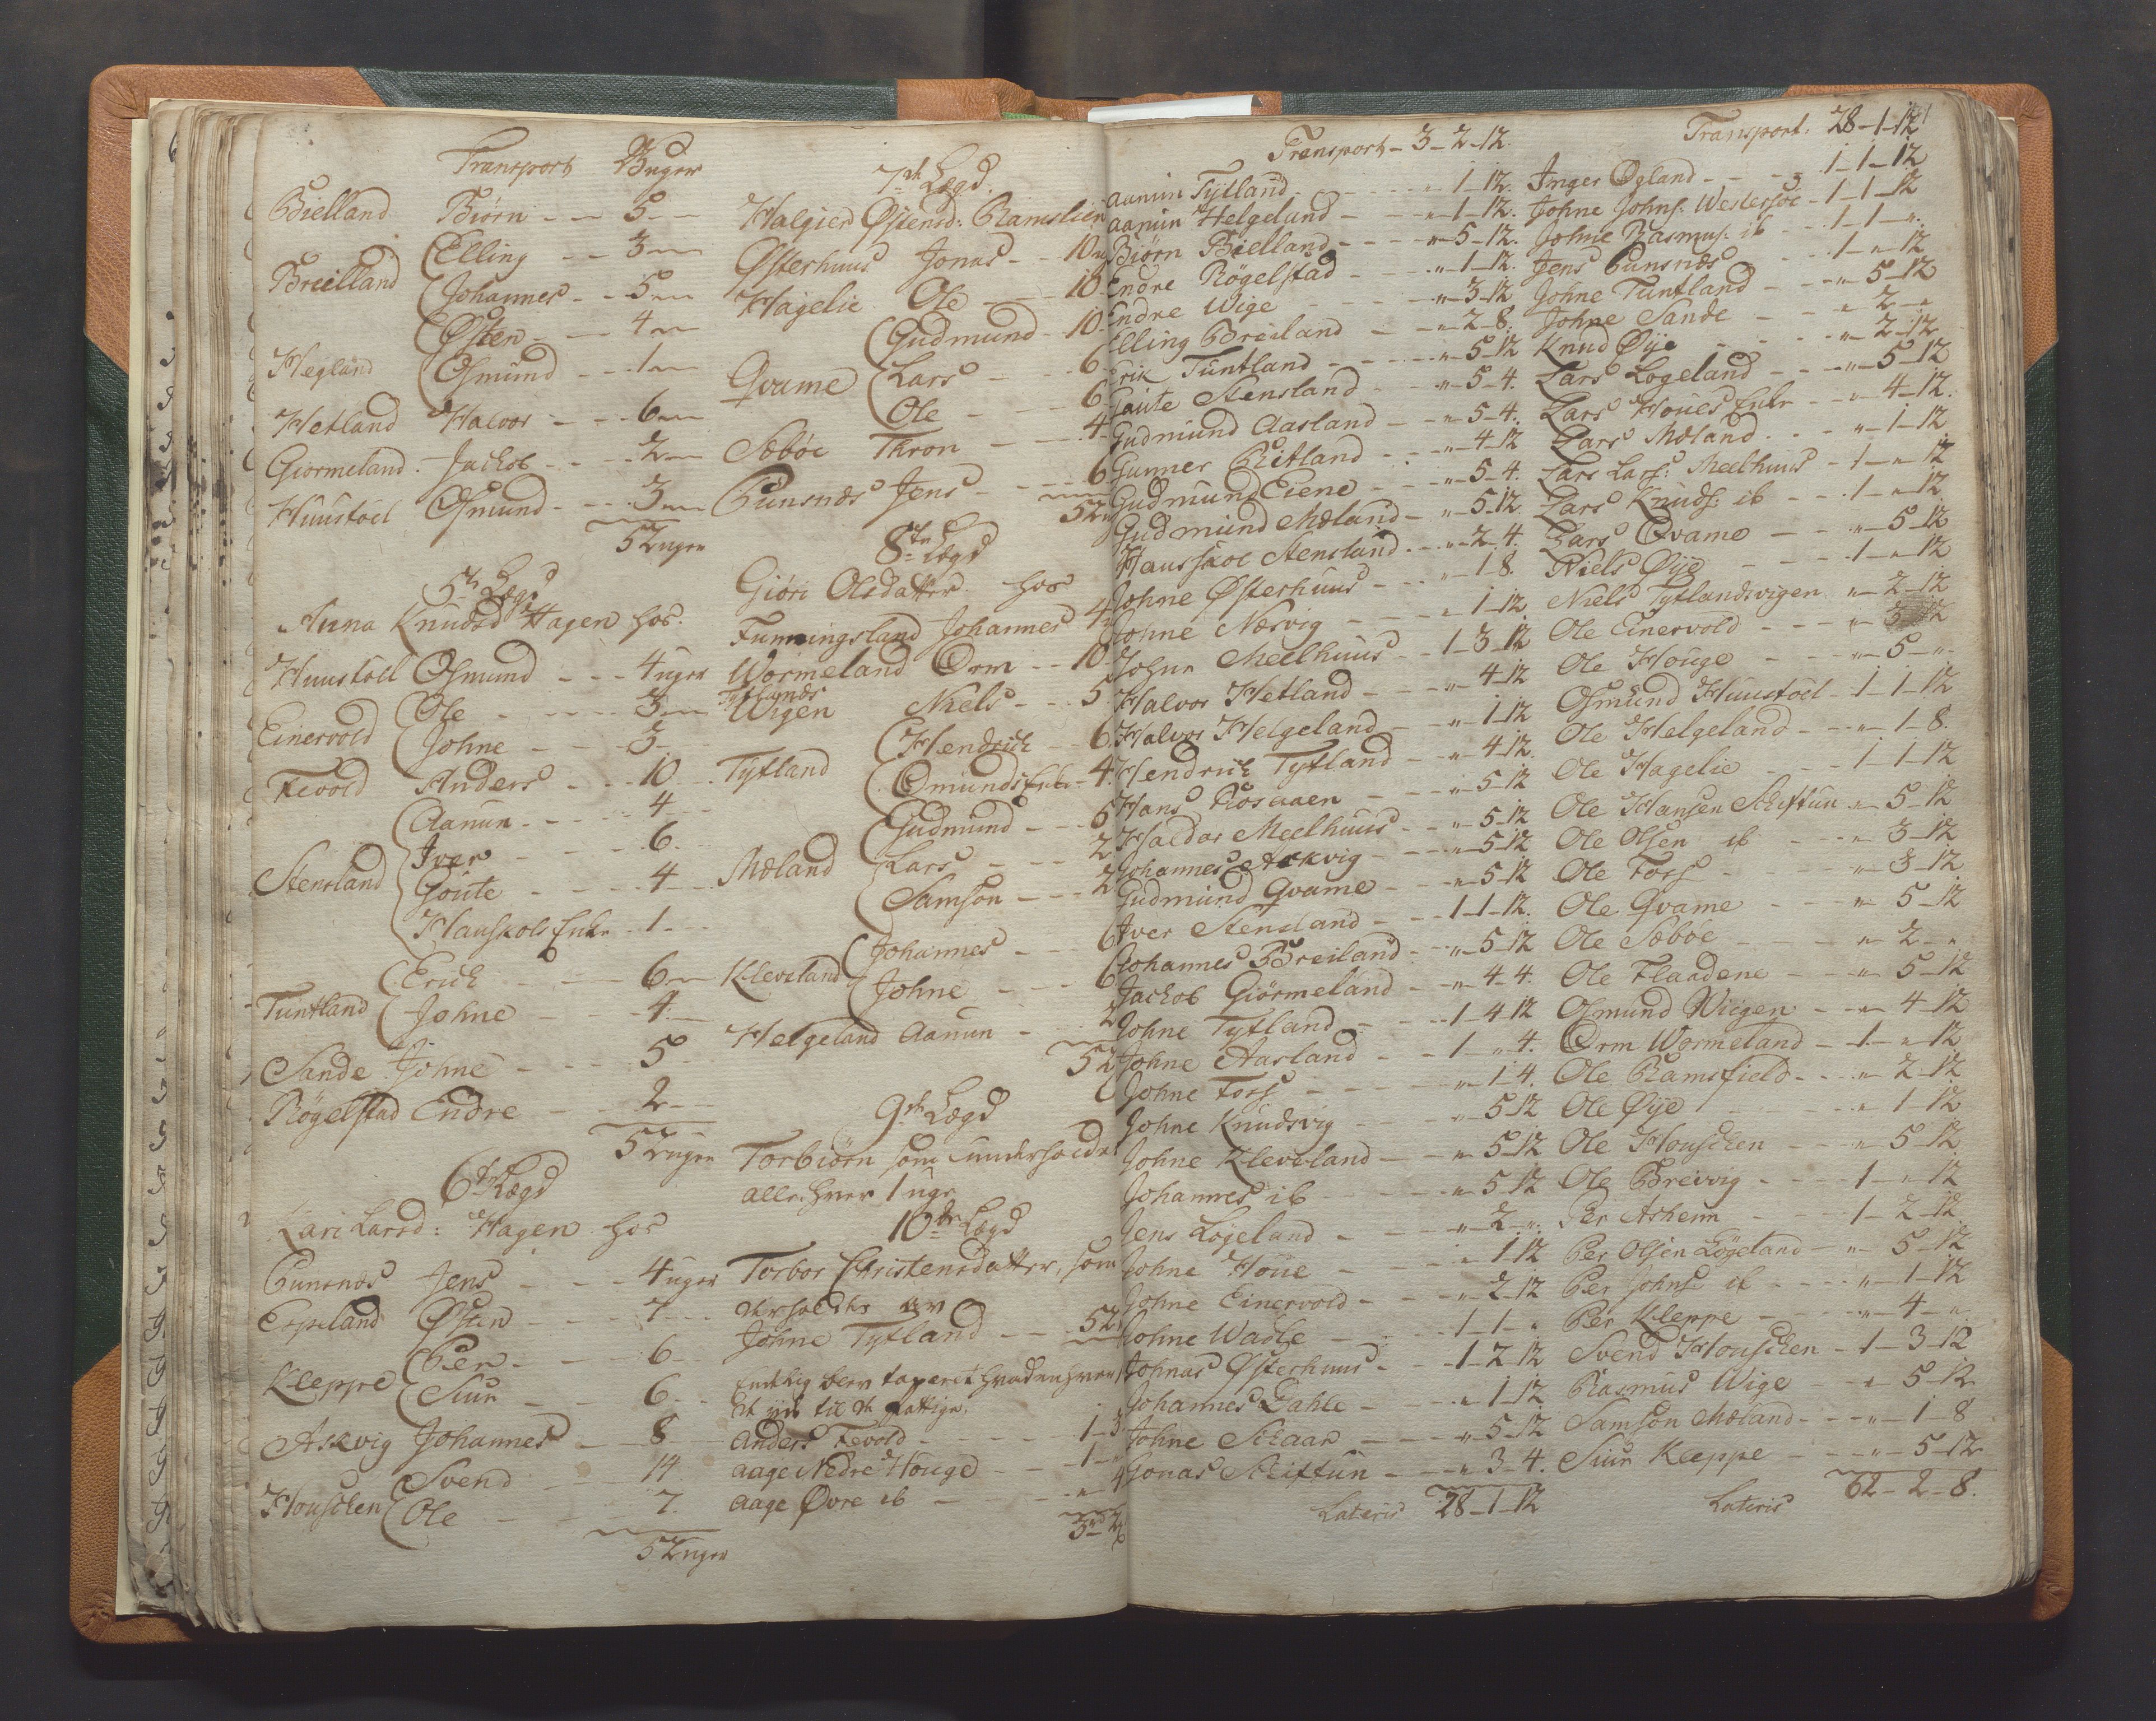 Transport 23 uger
Bielland Biørn - - 5 -
Breilland Elling - - 3 -
Johannes - - 5 -
Østen - - 4 -
Hegland Osmund - - 1 -
Hetland Halvor - - 6 -
Giormeland Jachob - - 2 -
Huustoel Osmund - - 3 -
52 uger
5te Lægd
Anna Knudsd Hagen hos
Huustoll Osmund - - 4 uger
Einervold Ole - - 3 -
Johne - - 3
Fevold Anders - - 10
Stensland Aanun - - 4
Iver - - 6
Goute - - 4
Hauskols Enke - 1
Tuntland Erich - - 6 -
Johne - - 4
Sande Johne - - 5
Røgelstad Endre - - 2
52 uger
6te Lægd
Kari Larsd: Hagen hos
Gunsnæs Jens - - 4 uger
Espeland Østen - - 7
Kleppe Per - - 6
Siur - - 6
Askvig Johannes - 8
Houschen Svend - 14
Ole - 7
52 uger
7de Lægd
Halgierd Østensd: Ramslien
Østerhuus Jonas - - 10 u
Hagelie Ole - - 10
Qvame Gudmund - 10
Lars - - 6
Ole - - 6
Sæbøe Thron - - 4
Gunsnæs Jens - - 6
52 u
8de Lægd
Giøri Olsdatter hos
Funningsland Johannes 4
Wormeland Orm - - 10
Tytlands Wigen Niels - - 5
Tytland Hendrich - 6
Omunds Enke - 4
Mæland Gudmund - - 5
Lars - - 2
Samson - - 2
Kleveland Johannes - - 6
Johne - - 6
Helgeland Aanun - 2
52
9de Lægd
Torbiørn som underholdes
alle hver 1 uge
10de Lægd
Torbor Christensdatter, som
Johne Tytland - - 52
Endelig blev taxeret hvad enhver
Anders Fevold - - 1 - 3
Aage Nedre Houge - - 1 -
Aage Øvre ib - -
Transport - 3 - 2 - 12
Aanun Tytland - - " - 1 - 12.
Aanun Helgeland - - " - 1 - 12.
Biørn Bielland - - " - 5 - 12.
Endre Røgelstad - - " - 1 - 12.
Endre Wige - - " - 3 - 12
Elling Breiland - - " - 2 - 8.
Erik Tuntland - - " - 5 - 12
Gaute Stensland - - " - 5 - 4.
Gudmund Aasland - - " - 5 - 4.
Gunner Ritland - - " - 4 - 12
Gudmund Eiene - - " - 5 - 4.
Gudmund Mæland - " - 5 - 12.
Hausskoe Stensland - " - 2 - 4.
Johne Østerhuus - - " - 1 - 8.
Johne Næsvig - - " - 1 - 12
Johne Meelhuus - - 1 - 3 - 12
Halvor Hetland - - " - 4 - 12
Halvor Helgeland - - " - 1 - 12
Hendrich Tytland - - " - 4 - 12.
Hans Rosaaen - - " - 5 - 12
Haldor Meelhuus - - " - 5 - 12
Johannes Askvig - - " - 5 - 12
Gudmund Qvame - - " - 5 - 12
Iver Stensland - - 1 - 1 - 12.
Johannes Breiland - " - 5 - 12
Jachob Giørmeland - " - 4 - 4.
Johne Tytland - - 1 - 4 - 12
Johne Aasland - - 1 - " - 4.
Johne Foss - - " - 1 - 4.
Johne Knudsvig - - " - 5 - 12
Johne Kleveland - - " - 5 - 12
Johannes ib - - " - 5 - 12
Jens Løgeland - - " - 2 - ".
Johne Houe - - " - 1 - 12
Johne Einervold - - " - 2 - 12
Johne Wadle - - 1 - 1 - "
Johnas Østerhuus - - 1 - 2 - 12
Johannes Dahle - - " - 1 - 12
Johne Schaar - - " - 5 - 12
Jonas Schiftun - - " - 3 - 4.
Lateris 28 - 1 - 12
Transport. 28 - 1 - 12
Inger Øgland - - 1 - 1 - 12
Johne Johns: Westersøe - 1 - 1 - 12
Johne Rasmus: ib - - 1 - 1 - ".
Jens Gunsnæs - - 1 - " - 12
Johne Tuntland - - " - 5 - 12
Johne Sande - - " - 2 - "
Knud Øye - - " - 2 - 12
Lars Løgeland - - " - 5 - 12
Lars Houes Enke - - " - 4 - 12.
Lars Mæland - - " - 1 - 12
Lars Lars: Meelhuus - 1 - " - 12
Lars Knuds: ib - - 1 - " - 12
Lars Qvame - - " - 5 - 12
Niels Øye - - 1 - " - 12
Niels Tytlandsvigen " - 2 - 12
Ole Einervold - - " - 3 - 12
Ole Houge - - " - 5 - "
Osmund Huustoel - 1 - 1 - 12
Ole Helgeland - - " - 1 - 8.
Ole Hagelie - - 1 - 1 - 12
Ole Hansen Schiftun " - 5 - 12
Ole Olsen ib - - " - 3 - 12
Ole Foss - - " - 3 - 12
Ole Qvame - - " - 5 - 12
Ole Sæbøe - - " - 2 - "
Ole Flaadene - - " - 5 - 12
Osmund Wiigen - - " - 4 - 12
Orm Wormeland - 1 - " - 12
Ole Ramsfield - - " - 2 - 12
Ole Øye - - " - 1 - 12
Ole Houschen - - " - 5 - 12
Ole Breivig - - 1 - " - 12
Per Asheim - - 1 - 2 - 12
Per Olsen Løgeland - " - 5 - 12
Per Johns: ib - - " - 1 - 12
Per Kleppe - - " - 4 - "
Svend Houschen - 1 - 3 - 12
Rasmus Wige - " - 5 - 12
Samson Mæland - - " - 1 - 8
Siur Kleppe - - " - 5 - 12
Lateris 62 - 2 - 8.